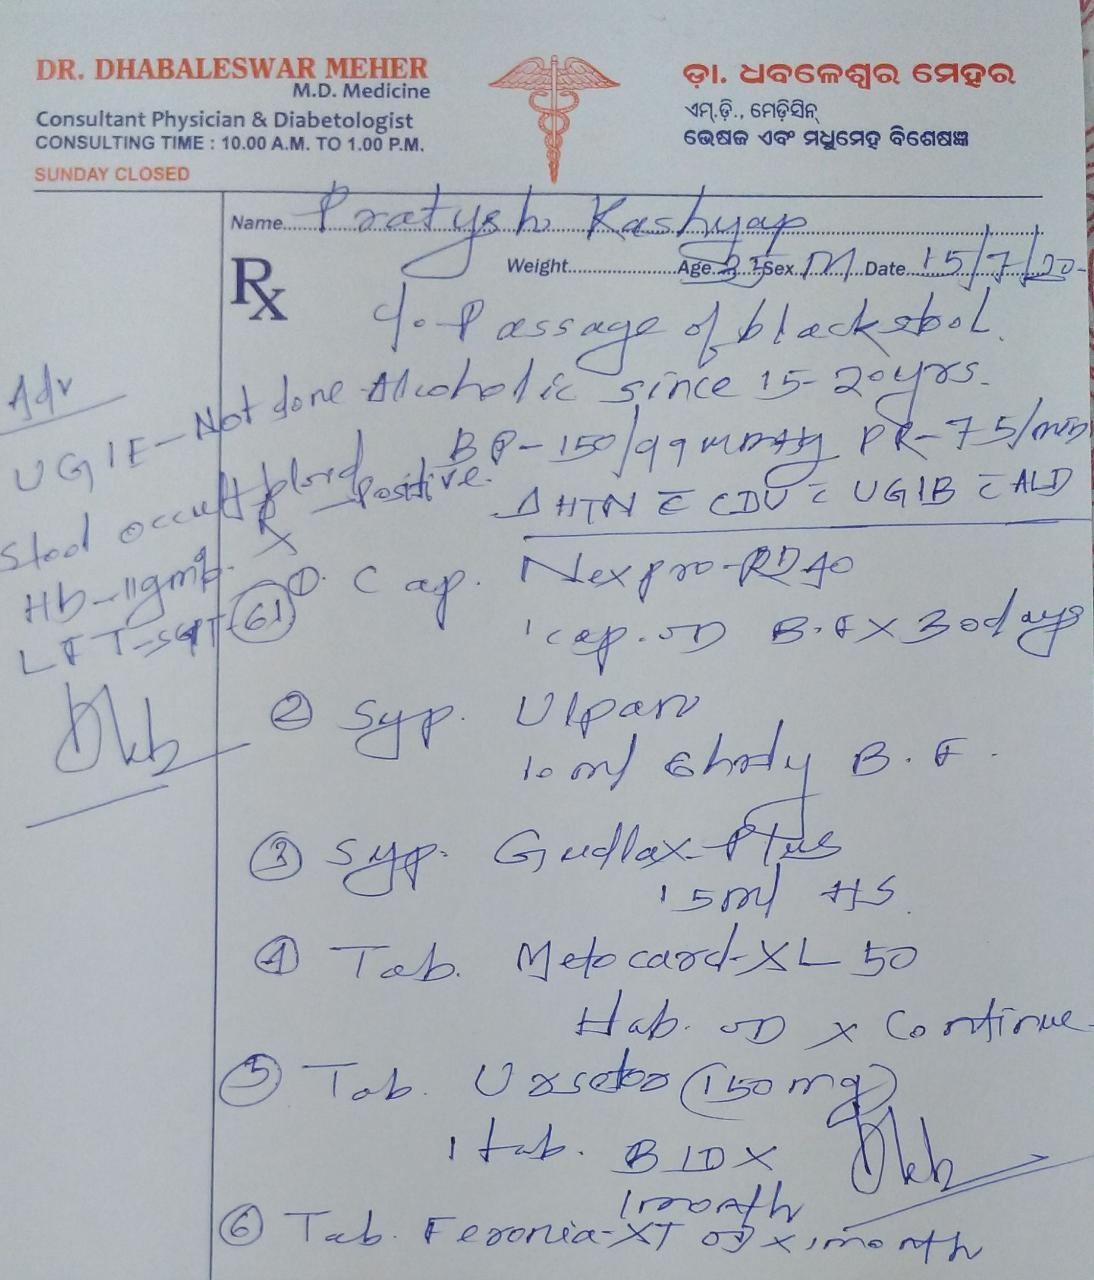 DR. DHABALESWAR MEHER
M.D. Medicine
Consultant Physician & Diabetologist
CONSULTING TIME : 10.00 A.M. TO 1.00 P.M.
SUNDAY CLOSED
ଡ଼ା. ଧବଳେଶ୍ୱର ମେହର
ଏମ୍.ଡ଼ି., ମେଡ଼ିସିନ୍
ଭେଷଜ ଏବଂ ମଧୁମେହ ବିଶେଷଜ୍ଞ
Name Pratyush Kashyap
Weight Age Sex M Date 15/7/20
Rx
C/o- Passage of black stool.
Alcoholic since 15-20yrs.
BP-150/99 mmHg PR-75/min
Δ HTN c̄ CDV c̄ UGIB c̄ ALD
Adv
UGIE-Not done
Stool occult blood - Positive.
Hb-11gm%
LFT-SGPT-61
Rx
① Cap. Nexpro-RD 40
1 cap. OD B.F X 30days
② Syp. Ulpan
10ml 6hrly B.F.
③ Syp. Gudlax-Plus
15ml HS
④ Tab. Metocard-XL 50
1tab. OD x Continue
⑤ Tab. Ursetor (150mg)
1 tab. BID X
1month
⑥ Tab. Feronia-XT OD x 1month